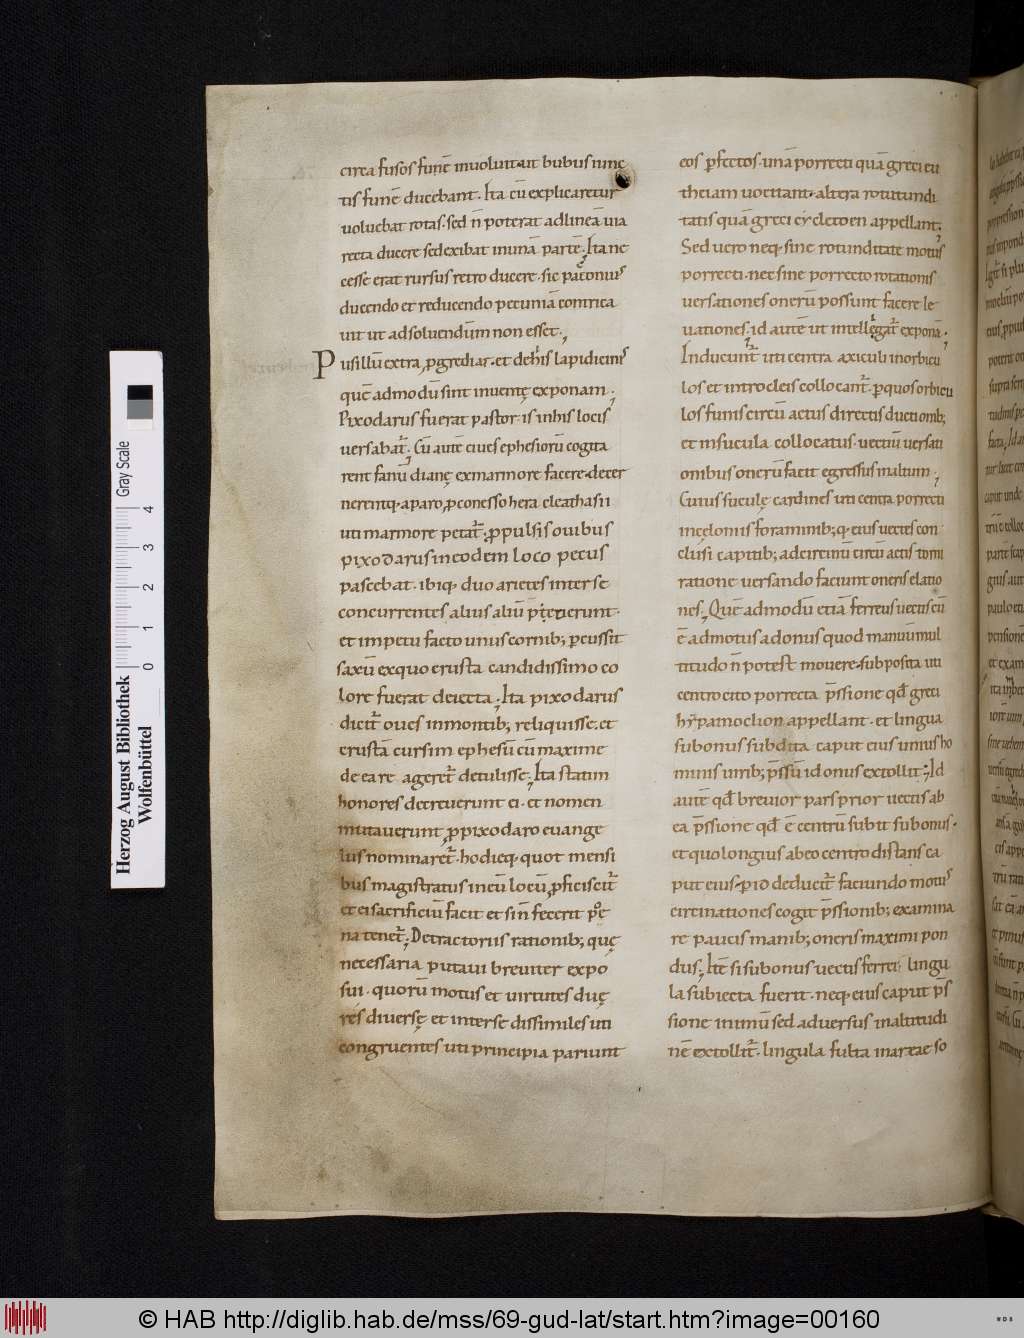 circa fusos funẽ inuoluit ut bubus iunc
tis funẽ ducebant. Ita cũ explicaretur
uoluebat rotas. sed ñ poterat ad lineã uia
recta ducere sed exibat in unã partẽ. Ita ne
cesse erat rursus retro ducere. sic paconius
ducendo et reducendo pecuniã contrica
uit ut ad soluendũm non esset.
Pusillũ extra ꝓgrediar. et de his lapidicinis
quẽ admodũ sint inuentę exponam.
Pixodarus fuerat pastor is in his locis
uersabat̃. Cũ autẽ ciues ephesiorũ cogita
rent fanũ dianę ex marmore facere decer
nerentq; a paro ꝓconesso hera clea thasii
uti marmore petat̃. ꝓpulsis ouibus
pixodarus in eodem loco pecus
pascebat. ibiq; duo arietes inter se
concurrentes alius aliũ p̃terierunt.
et impetu facto unus cornib; ꝑcussit
saxũ ex quo crusta candidissimo co
lore fuerat deiecta. Ita pixodarus
dicit̃ oues in montib; reliquisse. et
crustã cursim ephesũ cũ maxime
de ea re ageret̃ detulisse. Ita statim
honores decreuerunt ei. et nomen
mutauerunt ꝓ pixodaro euange
lus nominaret̃. hodieq; quot mensi
bus magistratus in eũ locũ ꝓficiscit̃
et ei sacrificiũ facit et si ñ fecerit poe
na tenet̃. De tractoriis rationib; quę
necessaria putaui breuiter expo
sui. quorũ motus et uirtutes duę
res diuersę et inter se dissimiles uti
congruentes uti principia pariunt
eos ꝑfectos. unã porrecti quã greci eu
theiam uocitant. altera rotutundi
tatis quã greci cycleto en appellant.
Sed uero neq; sine rotunditate motus
porrecti. nec sine porrecto rotationis
uersationes onerũ possunt facere le
uationes. id autẽ ut intellegat̃ exponã.
Inducunt̃ uti centra axiculi in orbicu
los et in trocleis collocant̃. ꝑ quos orbicu
los funis circũ actus directis ductionib;
et in sucula collocatus. uectiũ uersati
onibus onerũ facit egressus in altum.
Cuius suculę cardines uti centra porrecti
in cęloniis foraminib; q; eius uectes con
clusi capitib; ad circinũ circũ actis torni
ratione uersando faciunt oneris elatio
nes. Quẽ admodũ etiã ferreus uectis cũ
ẽ admotus ad onus quod manuũ mul
titudo ñ potest mouere. subposita uti
centro cito porrecta p̃ssione qđ greci
hypamoclion appellant. et lingua
sub onus subdita caput eius unius ho
minis uirib; p̃ssũ id onus extollit. Id
autẽ qđ breuior pars prior uectis ab
ea p̃ssione qđ ẽ centrũ subit sub onus.
et quo longius ab eo centro distans ca
put eius. p id deducit̃ faciundo motus
circinationes cogit p̃ssionib; examina
re paucis manib; oneris maximi pon
dus. Itẽ si sub onus uectis ferrei lingu
la subiecta fuerit. neq; eius caput p̃s
sione in imũ sed aduersus in altitudi
nẽ extollit̃. lingula fulta in areae so
Herzog August Bibliothek
Wolfenbüttel
Gray Scale
0 1 2 3 4
© HAB http://diglib.hab.de/mss/69-gud-lat/start.htm?image=00160
WDB